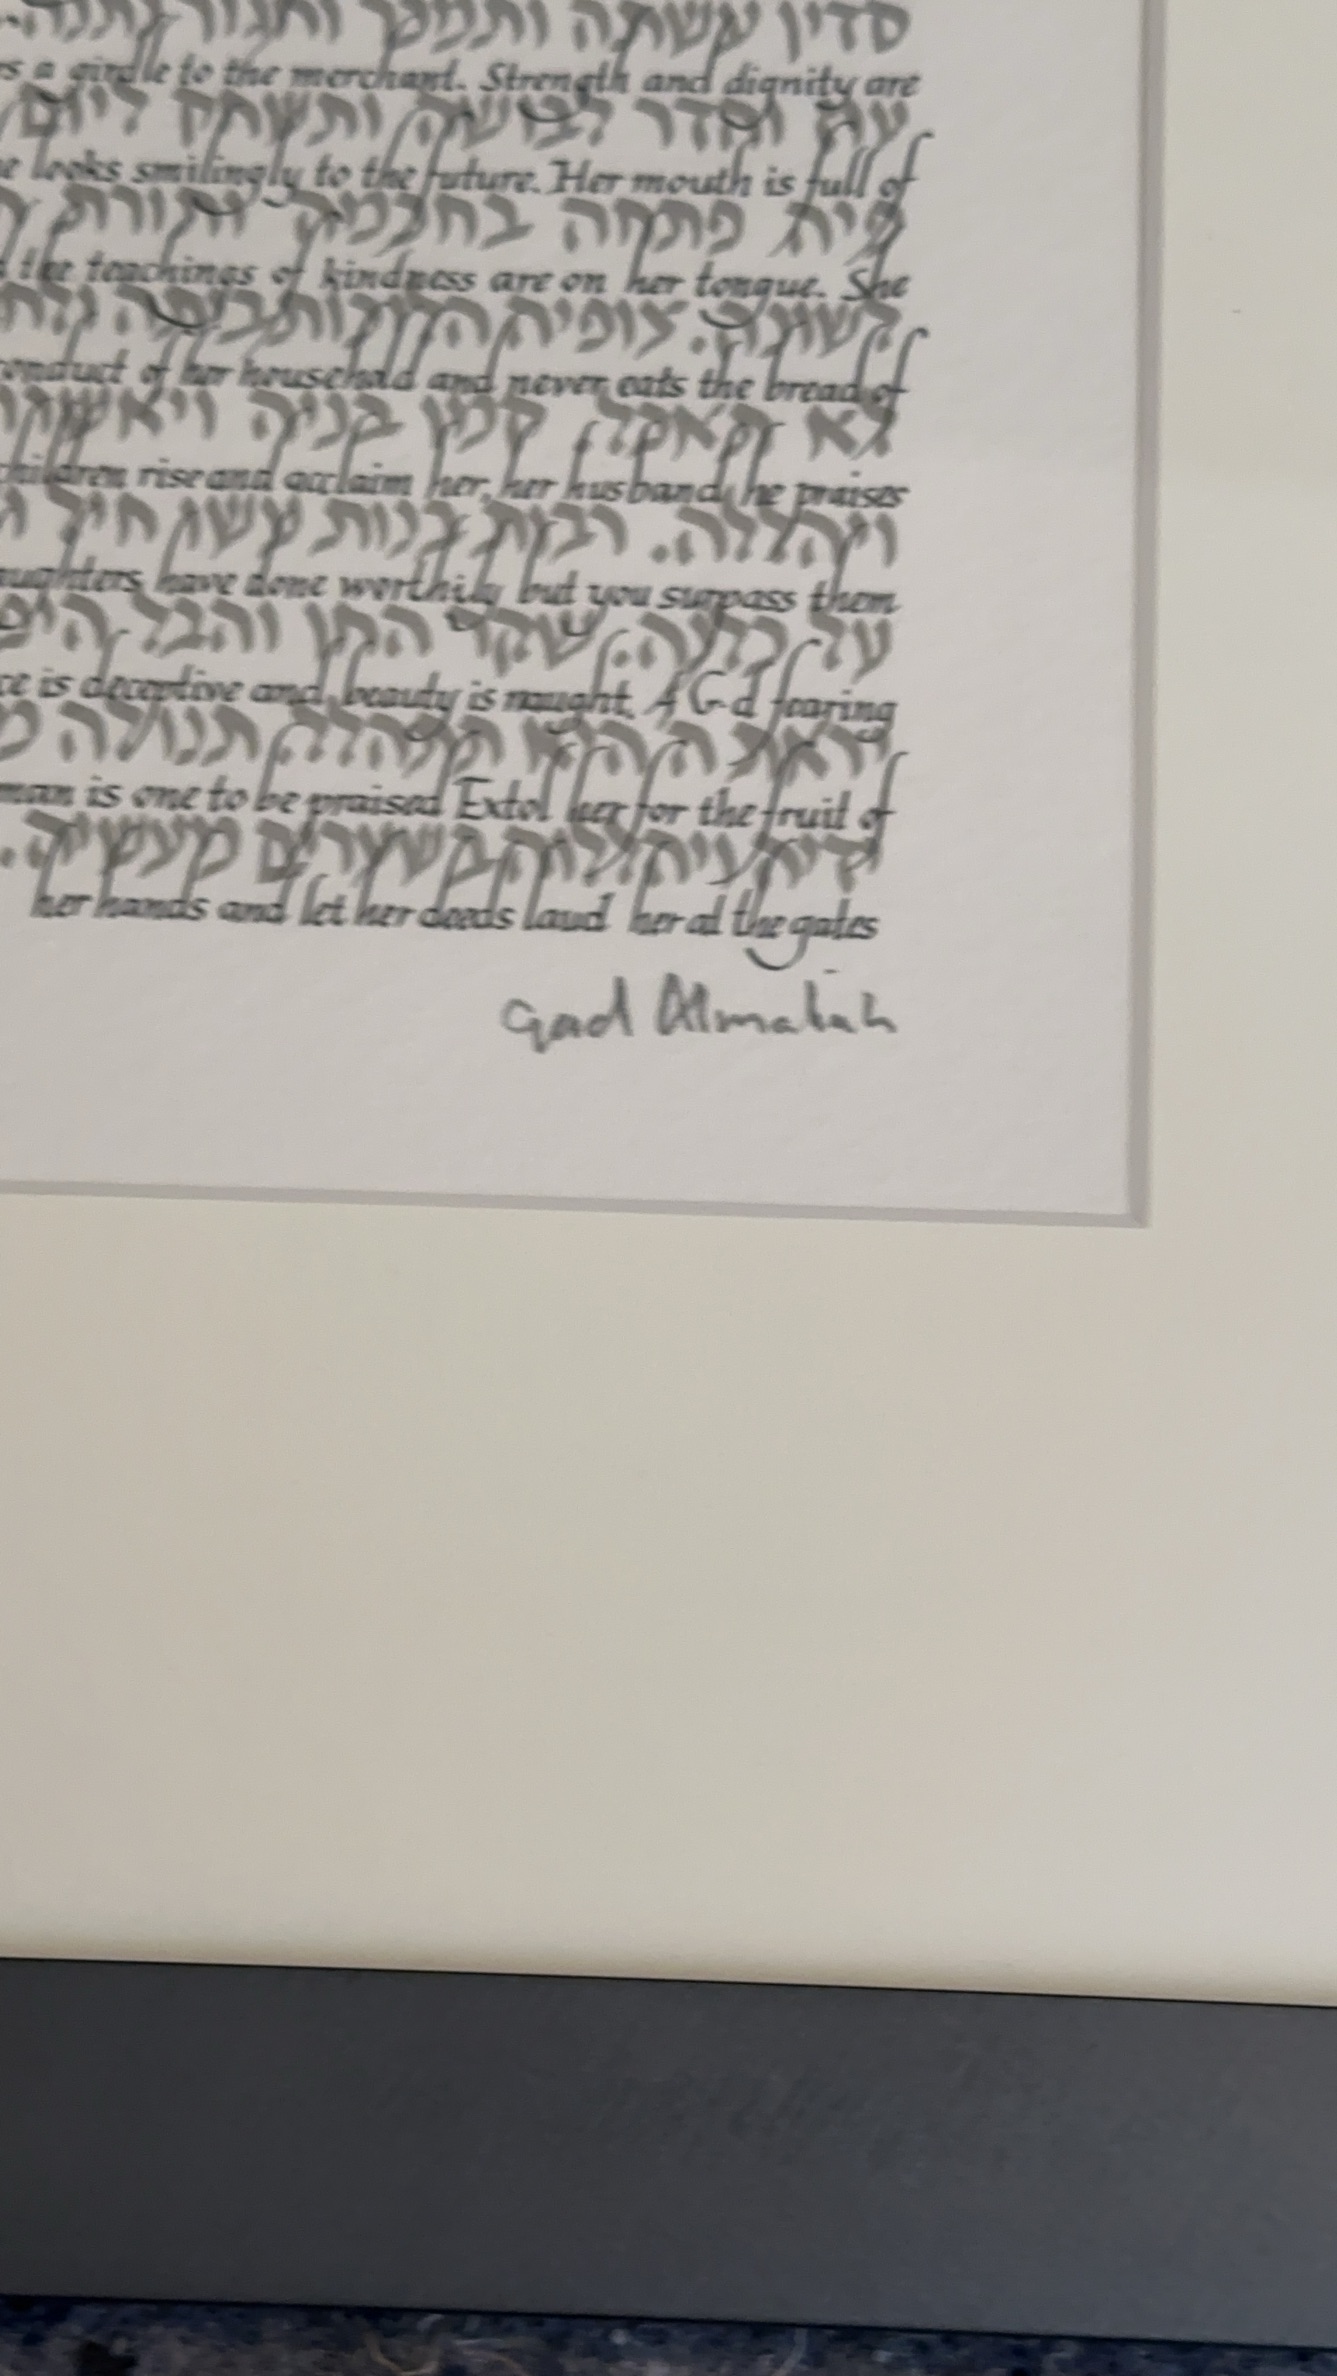 סדין עשתה ותמכר וחגור נתנה
a girdle to the merchant. Strength and dignity are
עז והדר לבושה ותשחק ליום
looks smilingly to the future. Her mouth is full of
פיה פתחה בחכמה ותורת
the teachings of kindness are on her tongue. She
לשונה. צופיה הליכות ביתה ולחם
conduct of her household and never eats the bread of
לא תאכל. קמו בניה ויאשרוה
children rise and acclaim her, her husband, he praises
ויהללה. רבות בנות עשו חיל
daughters have done worthily but you surpass them
על כלנה. שקר החן והבל היפי
is deceptive and beauty is naught. A G-d fearing
יראת ה היא תתהלל. תנו לה
man is one to be praised Extol her for the fruit of
ידיה ויהללוה בשערים מעשיה.
her hands and let her deeds laud her at the gates
Gad Almaliah